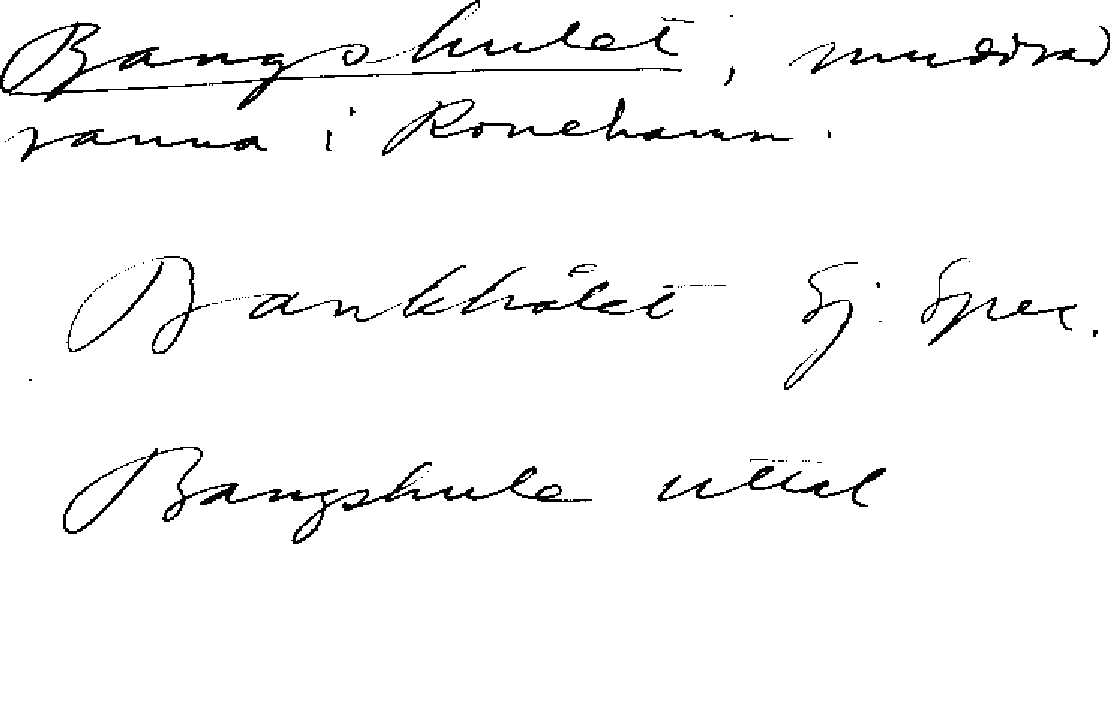 Bangshulet, muddrad
ränna i Ronehamn.
Bankhålet Ej: Spec.
Bangshule uttal